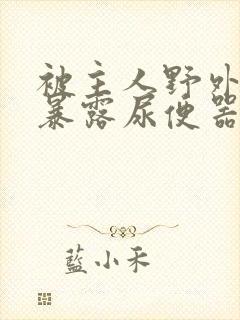 被主人野外
暴露尿便器
藍小禾